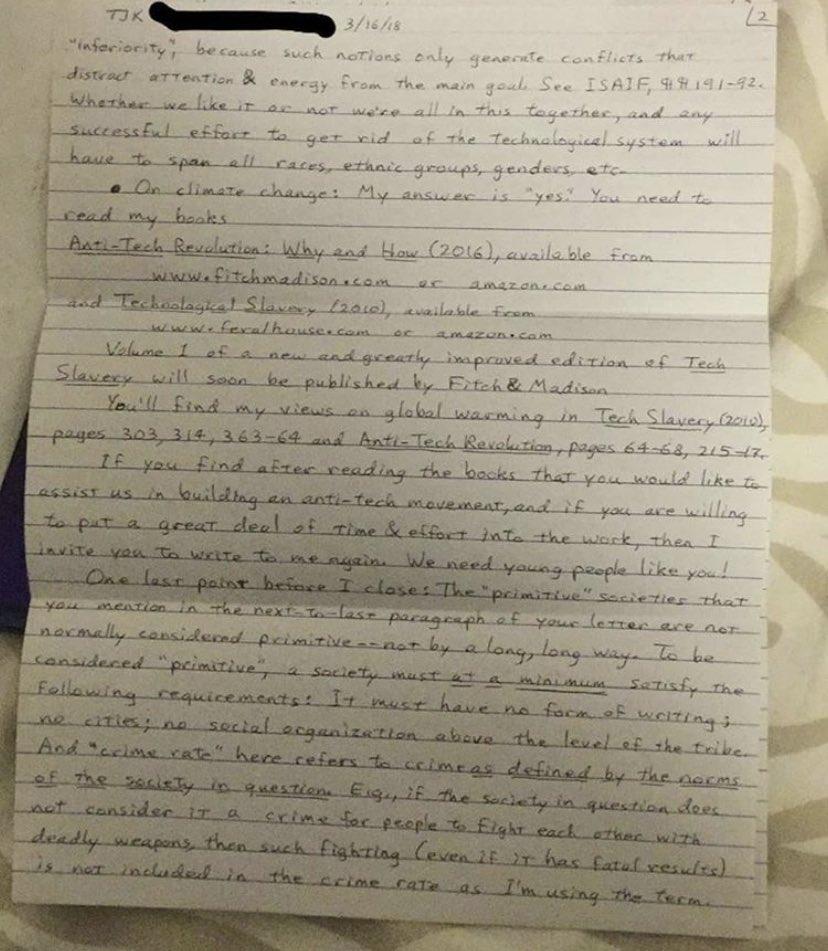 TJK 3/16/18 12
"inferiority", because such notions only generate conflicts that
distract attention & energy from the main goal. See ISAIF, ¶¶ 191-92.
Whether we like it or not we're all in this together, and any
successful effort to get rid of the technological system will
have to span all races, ethnic groups, genders, etc.
• On climate change: My answer is "yes." You need to
read my books
Anti-Tech Revolution: Why and How (2016), available from
www.fitchmadison.com or amazon.com
and Technological Slavery (2010), available from
www.feralhouse.com or amazon.com
Volume 1 of a new and greatly improved edition of Tech
Slavery will soon be published by Fitch & Madison
You'll find my views on global warming in Tech Slavery (2010),
pages 303, 314, 363-64 and Anti-Tech Revolution, pages 64-68, 215-17.
If you find after reading the books that you would like to
assist us in building an anti-tech movement, and if you are willing
to put a great deal of time & effort into the work, then I
invite you to write to me again. We need young people like you!
One last point before I close: The "primitive" societies that
you mention in the next-to-last paragraph of your letter are not
normally considered primitive--not by a long, long way. To be
considered "primitive", a society must at a minimum satisfy the
following requirements: It must have no form of writing;
no cities; no social organization above the level of the tribe.
And "crime rate" here refers to crime as defined by the norms
of the society in question. E.g., if the society in question does
not consider it a crime for people to fight each other with
deadly weapons, then such fighting (even if it has fatal results)
is not included in the crime rate as I'm using the term.